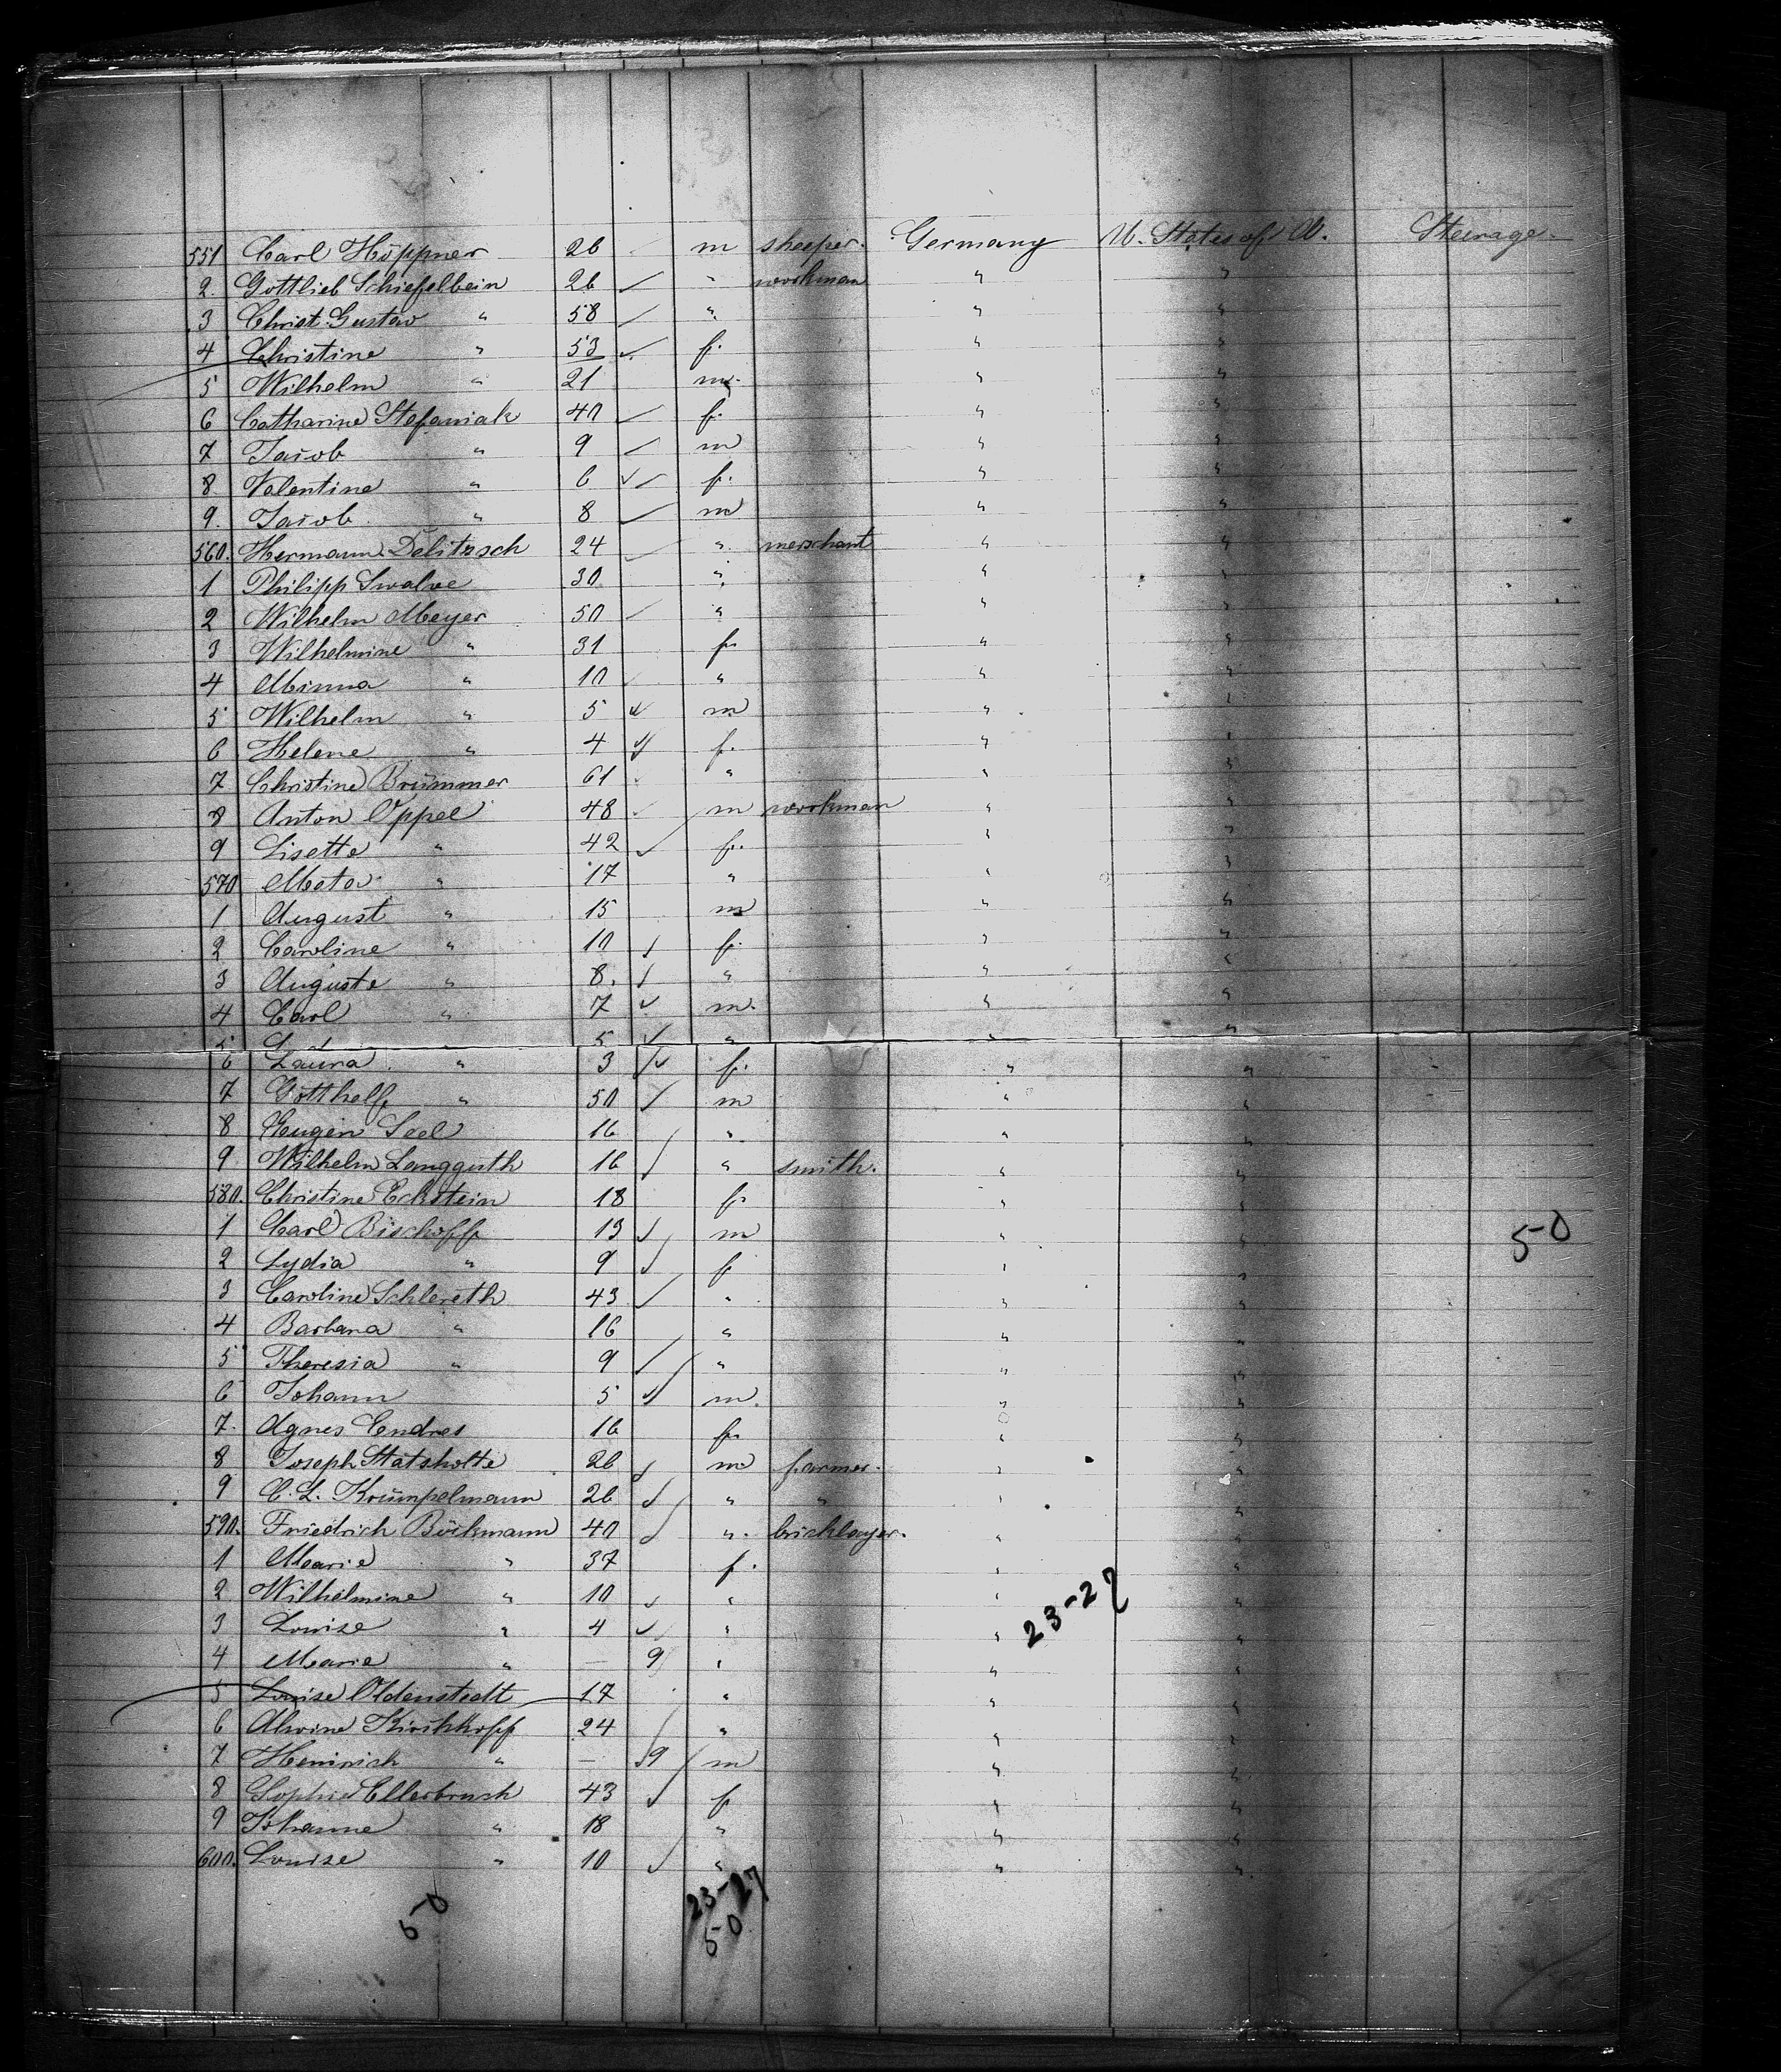 551 Carl Höppner 26 m sheeper. Germany U. States of A. Steerage.
2. Gottlieb Schiefelbein 26 " workman " "
3 Christ. Gustav " 58 " " "
4 Christine " 53 f. " "
5 Wilhelm " 21 m. " "
6 Catharine Stefaniak 40 f. " "
7 Jacob " 9 m " "
8 Valentine " 6 f. " "
9. Jacob " 8 m " "
560. Hermann Delitzsch 24 " merschant " "
1 Philipp Swalve 30 " " "
2 Wilhelm Meyer 50 " " "
3 Wilhelmine " 31 f. " "
4 Minna " 10 " " "
5 Wilhelm " 5 m " "
6 Helene " 4 f. " "
7 Christine Brümmer 61 " " "
8 Anton Oppel 48 m workman " "
9 Lisette " 42 f. " "
570 Meta " 17 " " "
1 August " 15 m " "
2 Caroline " 10 f. " "
3 Auguste " 8. " " "
4 Carl " 7 m. " "
5 5 " " "
6 Laura " 3 f. " "
7 Gotthelf " 50 m " "
8 Eugen Seel 16 " " "
9 Wilhelm Langguth 16 " smith. " "
580. Christine Eckstein 18 f. " "
1 Carl Bischoff 13 m " "
2 Lydia " 9 f " " 50
3 Caroline Schlereth 43 " " "
4 Barbara " 16 " " "
5 Theresia " 9 " " "
6 Johann 5 m. " "
7. Agnes Endres 16 f. " "
8 Joseph Statsholte 26 m farmer. " "
9 C. L. Krümpelmann 26 " " " "
590. Friedrich Böckmann 40 " bricklayer. " "
1 Marie " 37 f. " "
2 Wilhelmine " 10 " " "
3 Louise " 4 " " " 23-27
4 Marie " — 9 " " "
5 Louise Oldenstedt 17 " " "
6 Alwine Kirchhoff 24 " " "
7 Heinrich " — 9 m " "
8 Sophie Ellerbrush 43 f " "
9 Johanne " 18 " " "
600. Louise " 10 " " "
50 23-27
50